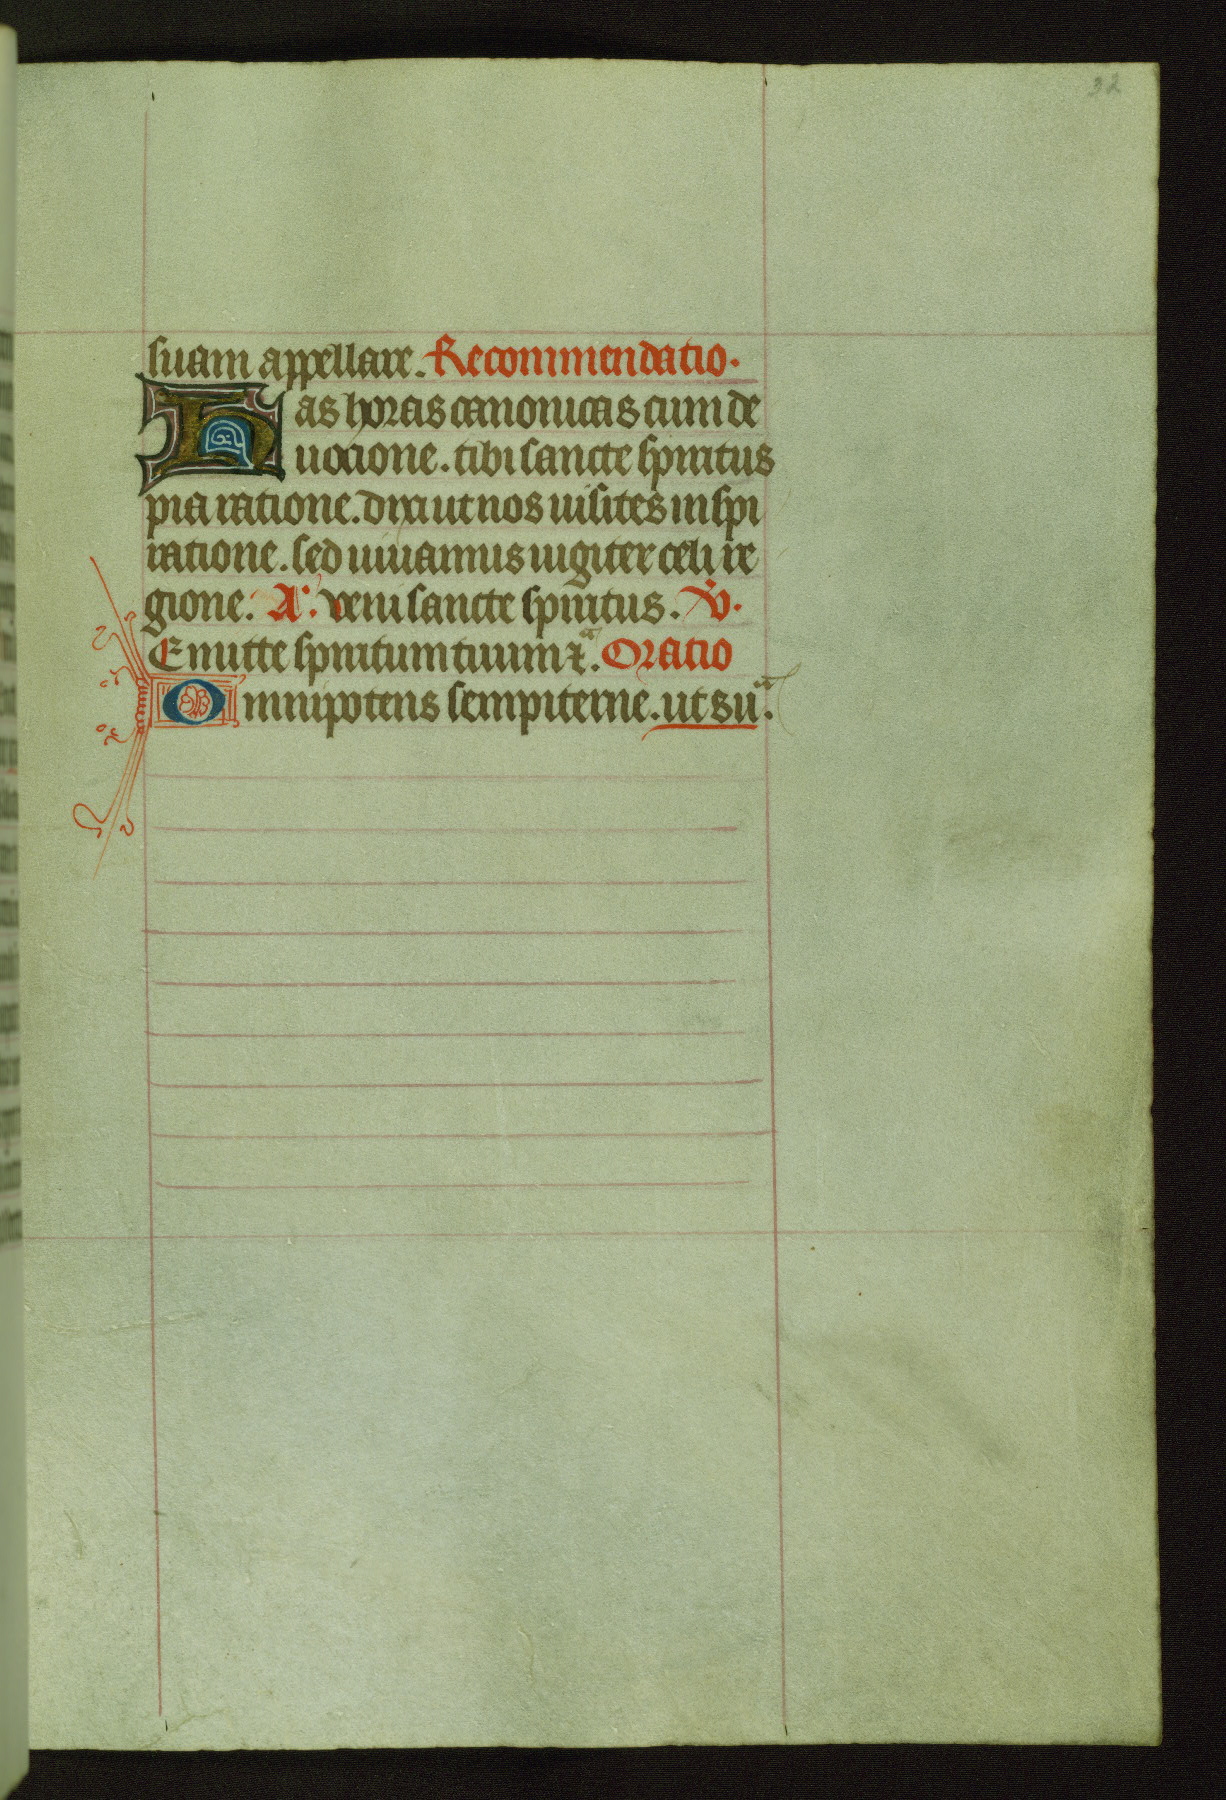 32
suam appellare. Recommendatio.
Has horas canonicas cum de
uocione. tibi sancte spiritus
pia ratione. dixi ut nos uisites inspi
ratione. sed uiuamus iugiter celi re
gione. A. veni sancte spiritus. V.
Emitte spiritum tuum ⁊c̃. Oratio
Omnipotens sempiterne. ut suᵃ.